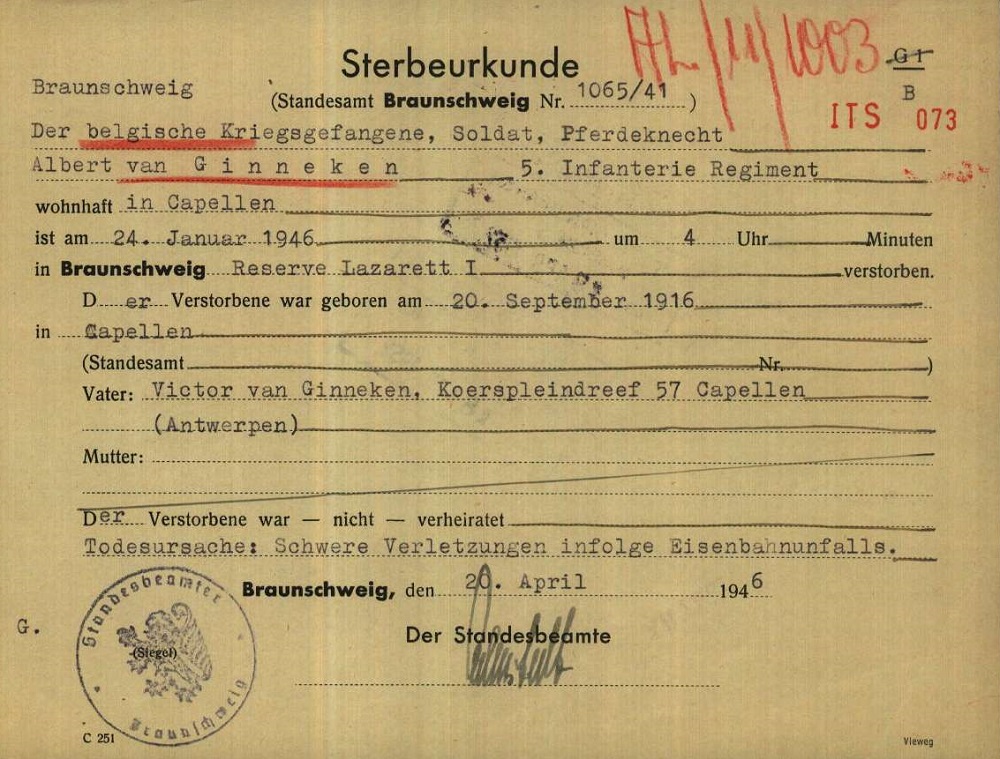 AL/14/1003
Sterbeurkunde
G 1
Braunschweig
(Standesamt Braunschweig Nr. 1065/41 )
B
ITS 073
Der belgische Kriegsgefangene, Soldat, Pferdeknecht
Albert van G i n n e k e n 5. Infanterie Regiment
wohnhaft in Capellen
ist am 24. Januar 1946 um 4 Uhr Minuten
in Braunschweig Reserve Lazarett I verstorben.
D er Verstorbene war geboren am 20. September 1916
in Capellen
(Standesamt Nr. )
Vater: Victor van Ginneken, Koerspleindreef 57 Capellen
(Antwerpen)
Mutter:
Der Verstorbene war — nicht — verheiratet
Todesursache: Schwere Verletzungen infolge Eisenbahnunfalls.
Braunschweig, den 20. April 1946
G.
Der Standesbeamte
Standesbeamter
(Siegel)
Braunschweig
C 251
Vieweg